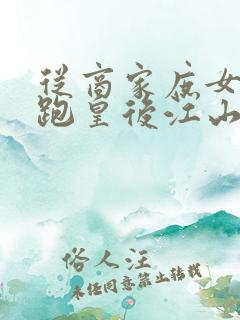 從商家庶女
跑皇後江山
俗人汪
未任同意禁止转载